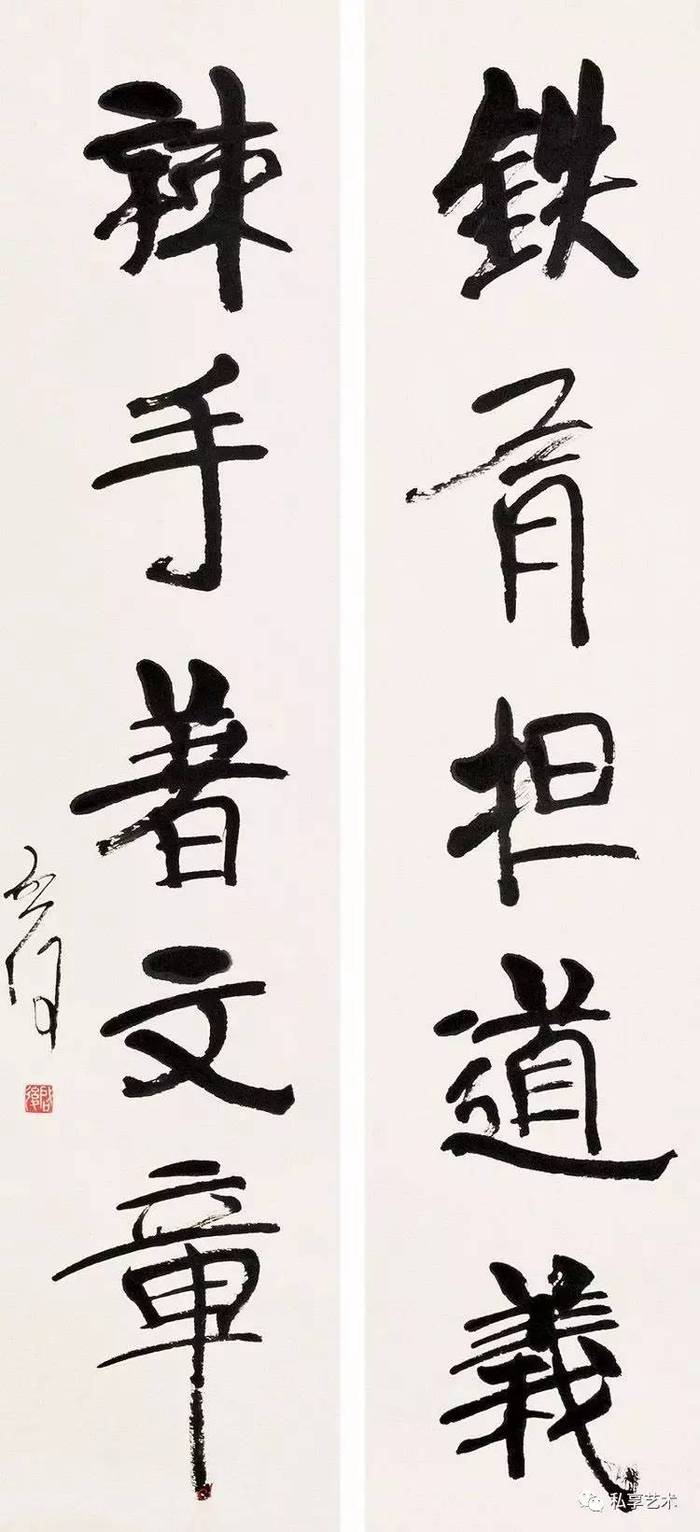 鉄肩担道義
辣手著文章
私享艺术